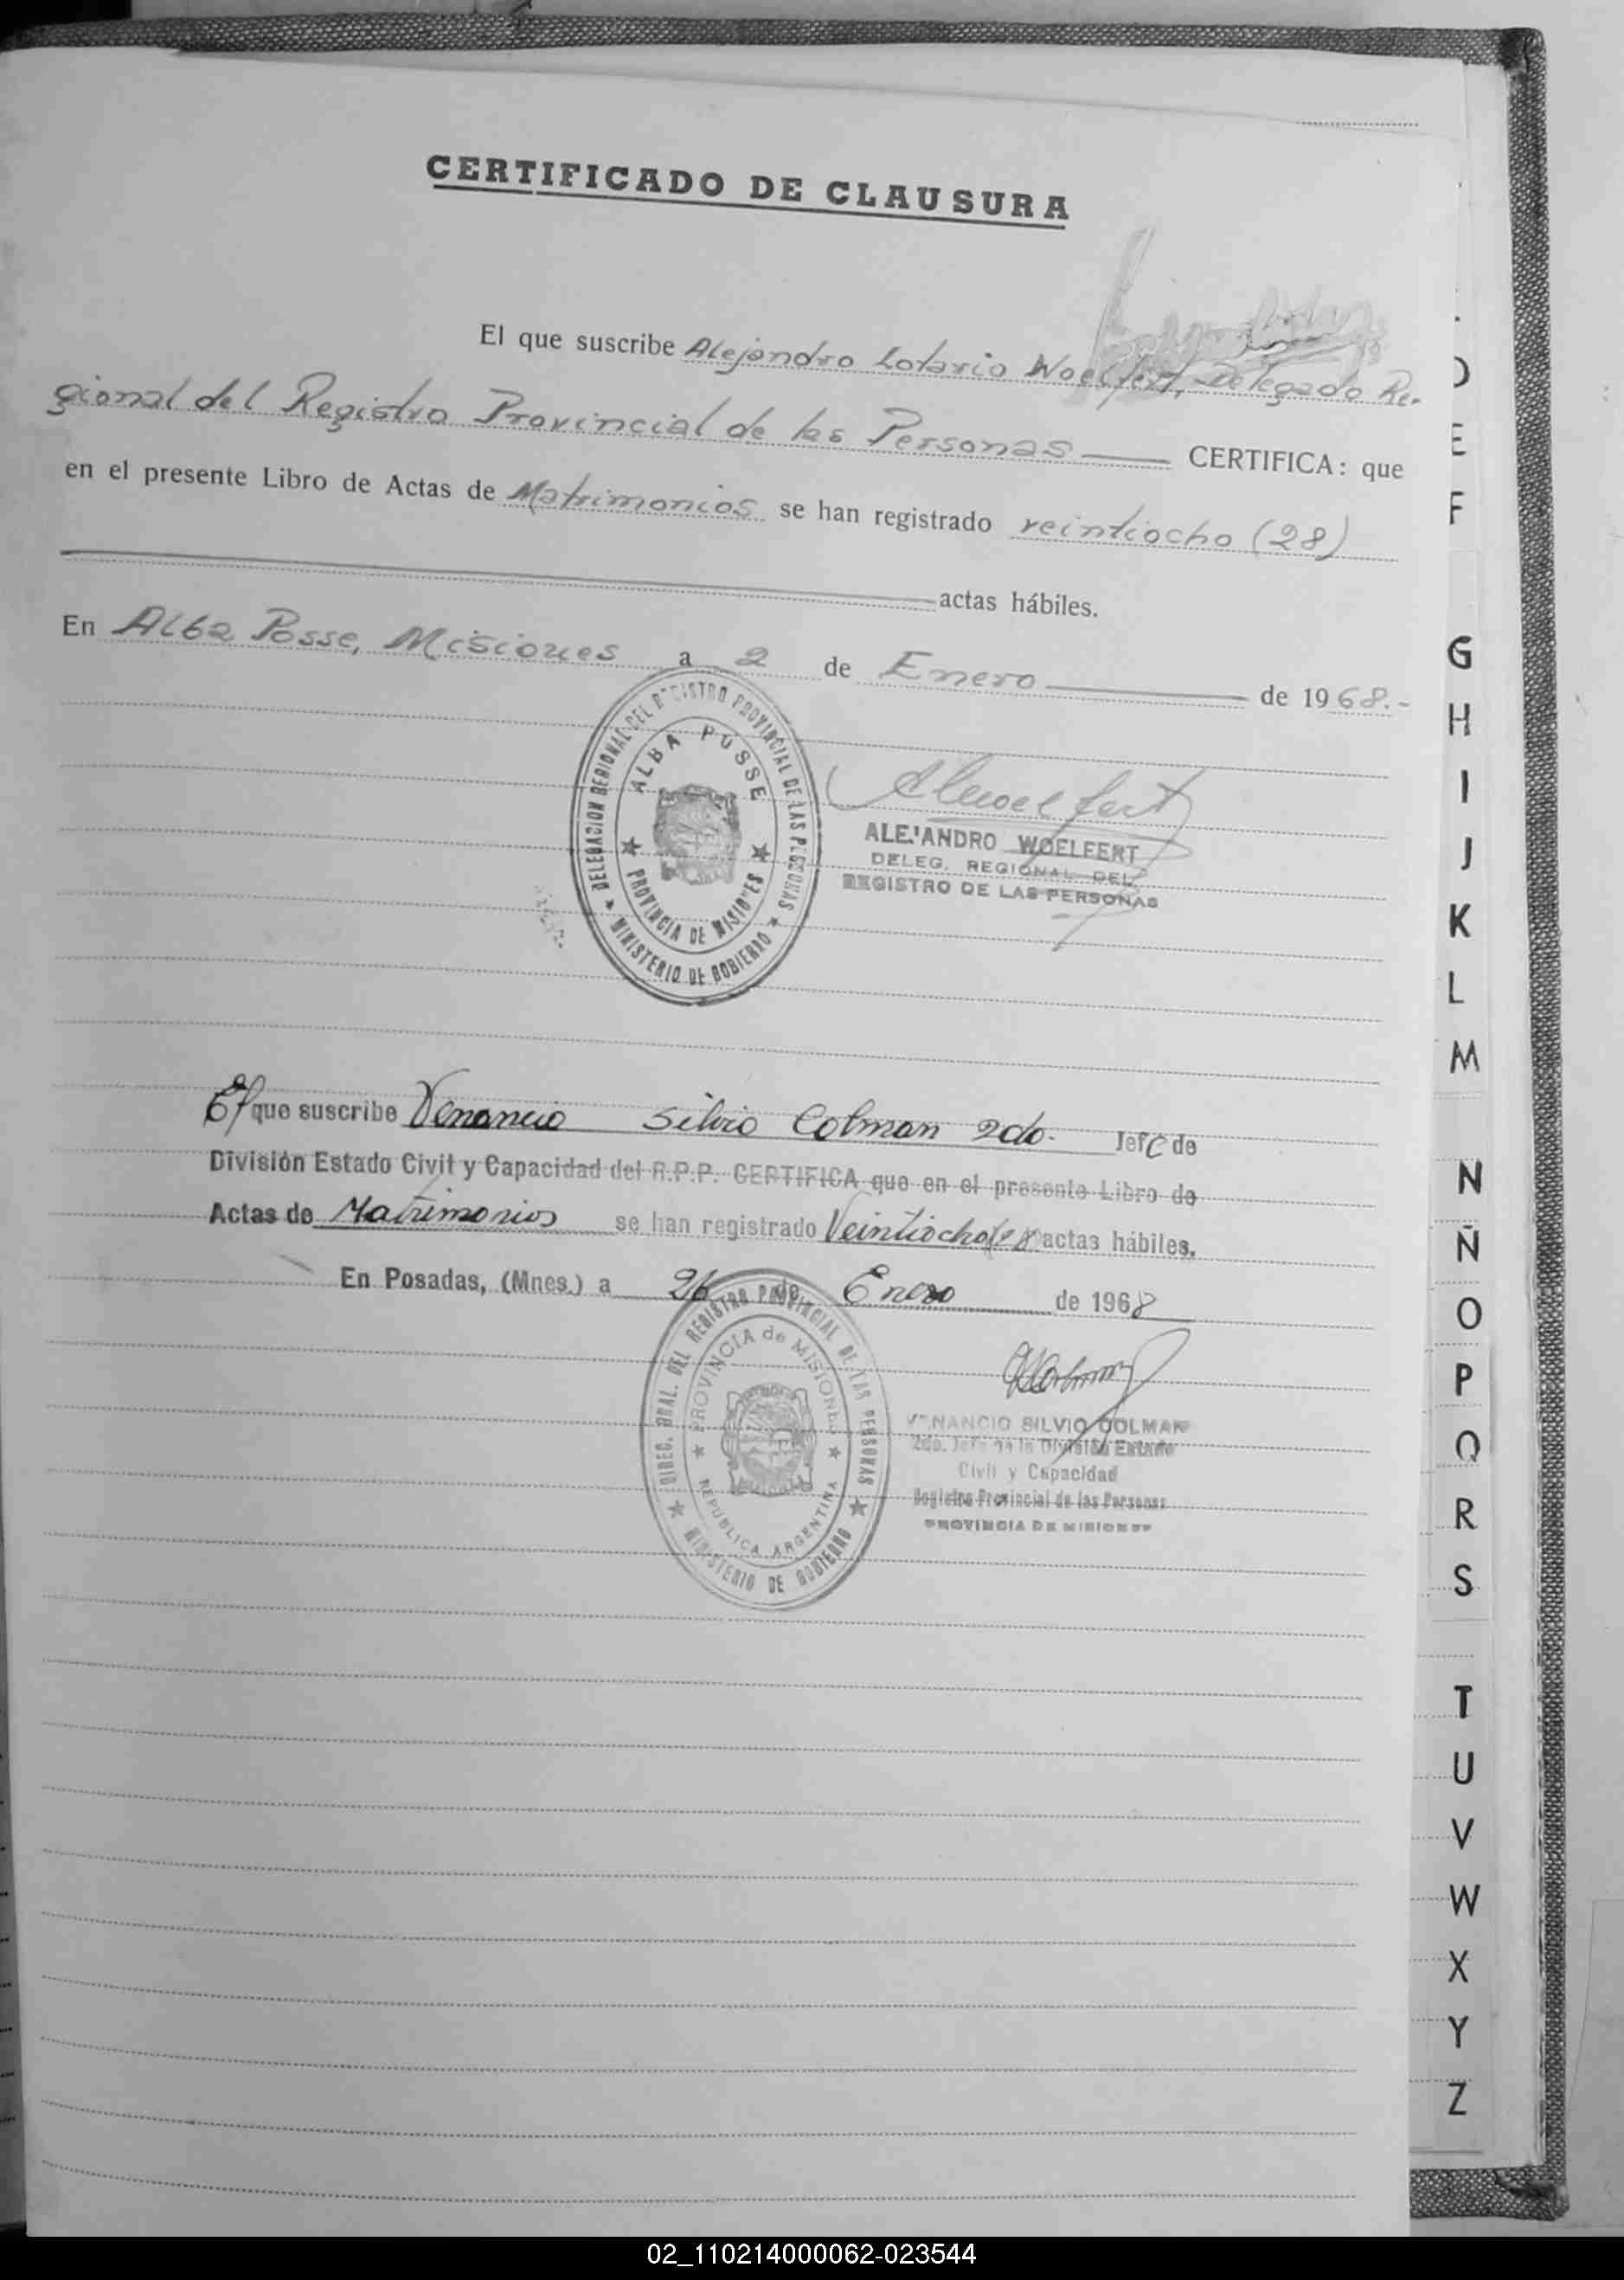 CERTIFICADO DE CLAUSURA
El que suscribe Alejandro Lotario Woelfert, Delegado Re-
gional del Registro Provincial de las Personas CERTIFICA: que
en el presente Libro de Actas de Matrimonios se han registrado veintiocho (28)
actas hábiles.
En Alba Posse, Misiones a 2 de Enero de 1968.-
DELEGACION REGIONAL DEL REGISTRO PROVINCIAL DE LAS PERSONAS
ALBA POSSE
PROVINCIA DE MISIONES
MINISTERIO DE GOBIERNO
AWoelfert
ALEJANDRO WOELFERT
DELEG. REGIONAL DEL
REGISTRO DE LAS PERSONAS
El que suscribe Venancio Silvio Colman 2do. Jefe de
División Estado Civil y Capacidad del R.P.P. CERTIFICA que en el presente Libro de
Actas de Matrimonios se han registrado Veintiocho (28) actas hábiles.
En Posadas, (Mnes.) a 26 de Enero de 1968
DIREC. GRAL. DEL REGISTRO PROVINCIAL DE LAS PERSONAS
PROVINCIA de MISIONES
REPUBLICA ARGENTINA
MINISTERIO DE GOBIERNO
VENANCIO SILVIO COLMAN
2do. Jefe de la División Estado
Civil y Capacidad
Registro Provincial de las Personas
PROVINCIA DE MISIONES
D
E
F
G
H
I
J
K
L
M
N
Ñ
O
P
Q
R
S
T
U
V
W
X
Y
Z
02_110214000062-023544